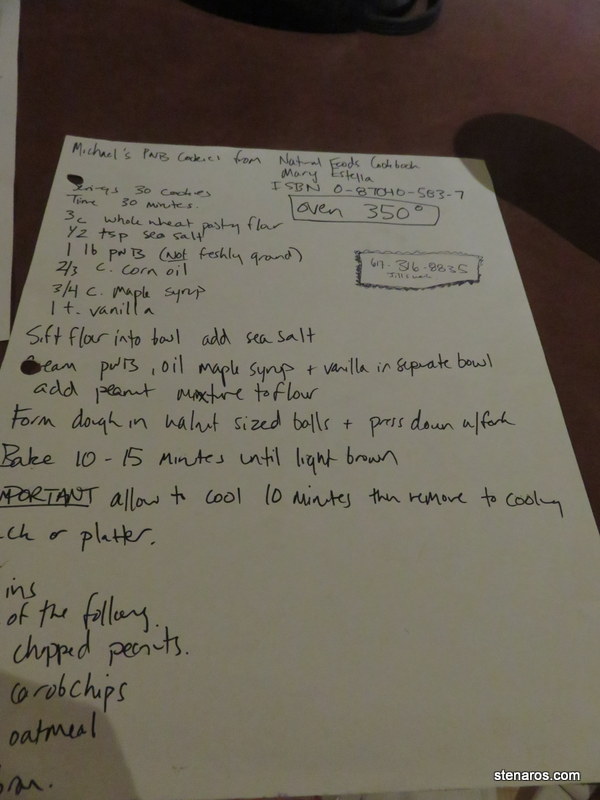 Michael's PNB Cookies from Natural Foods Cookbook
Mary Estella
ISBN 0-87040-583-7
Servings 30 Cookies
Time 30 minutes.
oven 350°
3c whole wheat pastry flour
1/2 tsp sea salt
1 lb PNB (Not freshly grand)
2/3 c. corn oil
3/4 c. maple syrup
1 t. vanilla
617-316-8835
Sift flour into bowl add sea salt
Cream PNB, oil maple syrup + vanilla in separate bowl
add peanut mixture to flour
Form dough in walnut sized balls + press down w/fork
Bake 10-15 minutes until light brown
MPORTANT allow to cool 10 minutes then remove to cooling
ck or platter.
ins
of the following.
chopped peanuts.
carob chips
oatmeal
stenaros.com